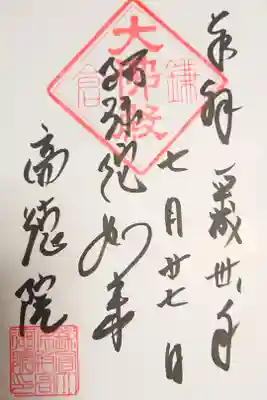 奉拝
平成卅年
七月廿七日
大佛殿
鎌倉
阿弥陀如来
高徳院